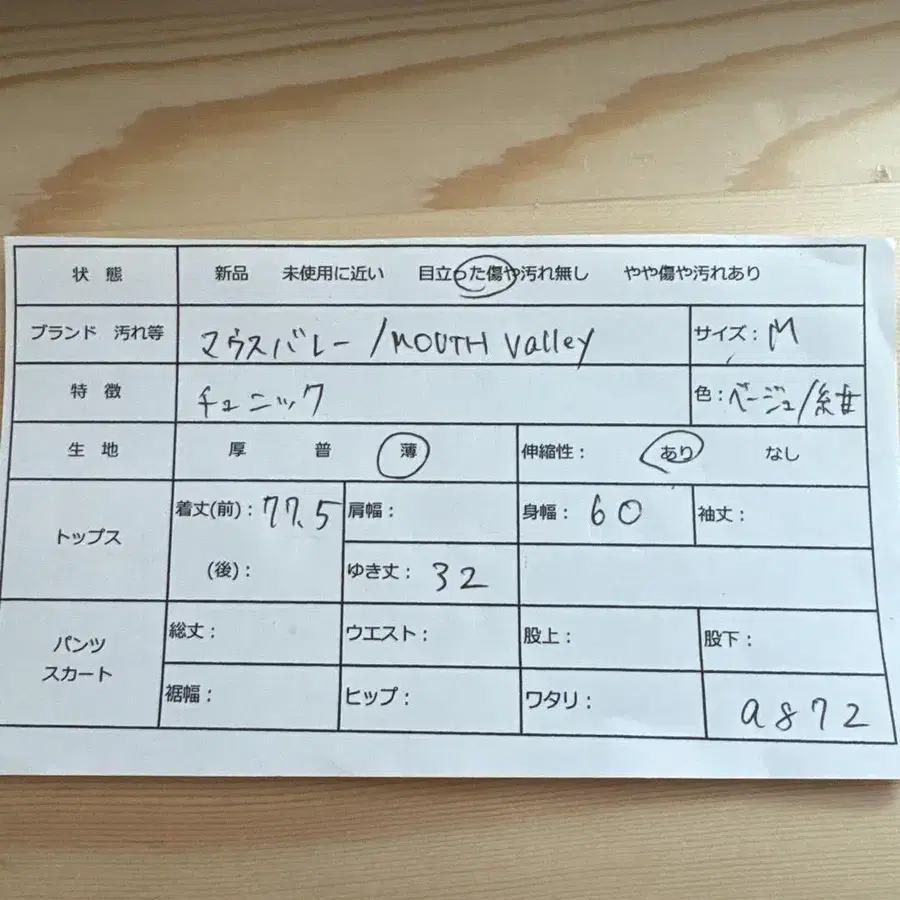 状 態 新品 未使用に近い 目立った傷や汚れ無し やや傷や汚れあり
ブランド 汚れ等 マウスバレー/MOUTH Valley サイズ: M
特 徴 チュニック 色: ベージュ/紺
生 地 厚 普 薄 伸縮性: あり なし
トップス 着丈(前): 77.5 肩幅: 身幅: 60 袖丈:
(後): ゆき丈: 32
パンツ スカート 総丈: ウエスト: 股上: 股下:
裾幅: ヒップ: ワタリ: a872